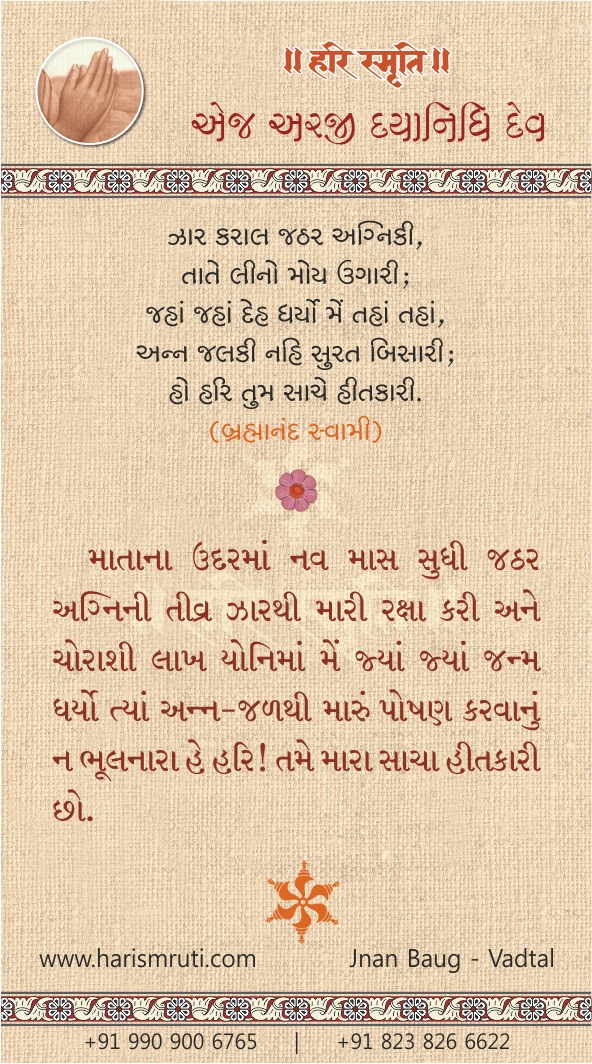 ॥ हरि स्मृति ॥
એજ અરજી દયાનિધિ દેવ
ઝાર કરાલ જઠર અગ્નિકી,
તાતે લીનો મોય ઉગારી;
જહાં જહાં દેહ ધર્યો મેં તહાં તહાં,
અન્ન જલકી નહિ સુરત બિસારી;
હો હરિ તુમ સાચે હીતકારી.
(બ્રહ્માનંદ સ્વામી)
માતાના ઉદરમાં નવ માસ સુધી જઠર
અગ્નિની તીવ્ર ઝારથી મારી રક્ષા કરી અને
ચોરાશી લાખ યોનિમાં મેં જ્યાં જ્યાં જન્મ
ધર્યો ત્યાં અન્ન-જળથી મારું પોષણ કરવાનું
ન ભૂલનારા હે હરિ! તમે મારા સાચા હીતકારી
છો.
www.harismruti.com Jnan Baug - Vadtal
+91 990 900 6765 | +91 823 826 6622